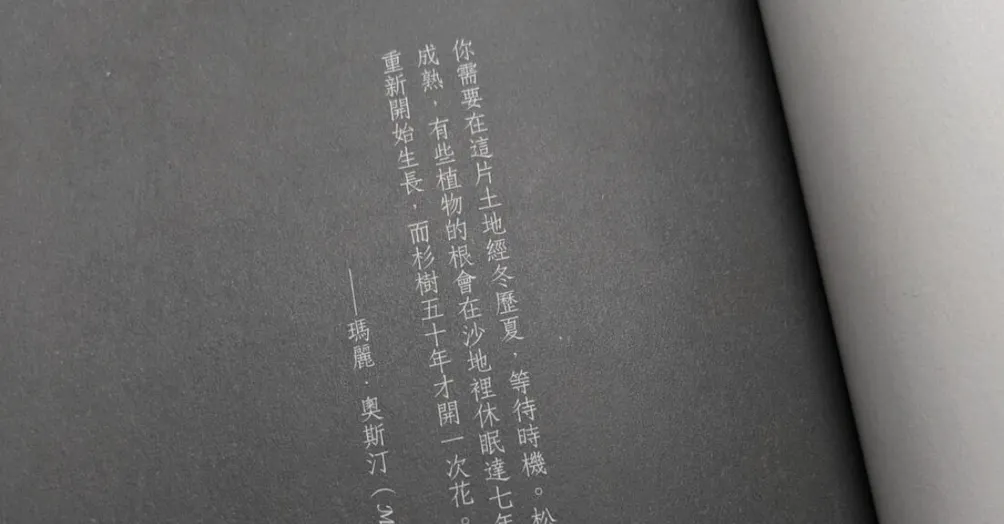 你需要在這片土地經冬歷夏，等待時機。松
成熟，有些植物的根會在沙地裡休眠達七年
重新開始生長，而杉樹五十年才開一次花。
——瑪麗．奧斯汀（M